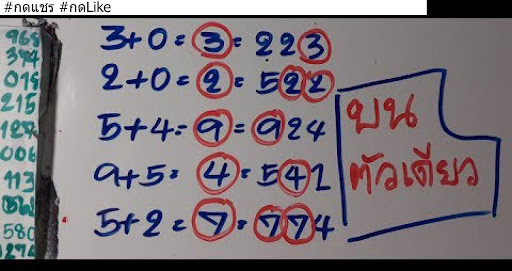 #กดแชร #กดLike
3+0=3=223
2+0=2=522
5+4=9=924
9+5=4=541
5+2=7=774
บน
ตัวเดียว
215
113
580